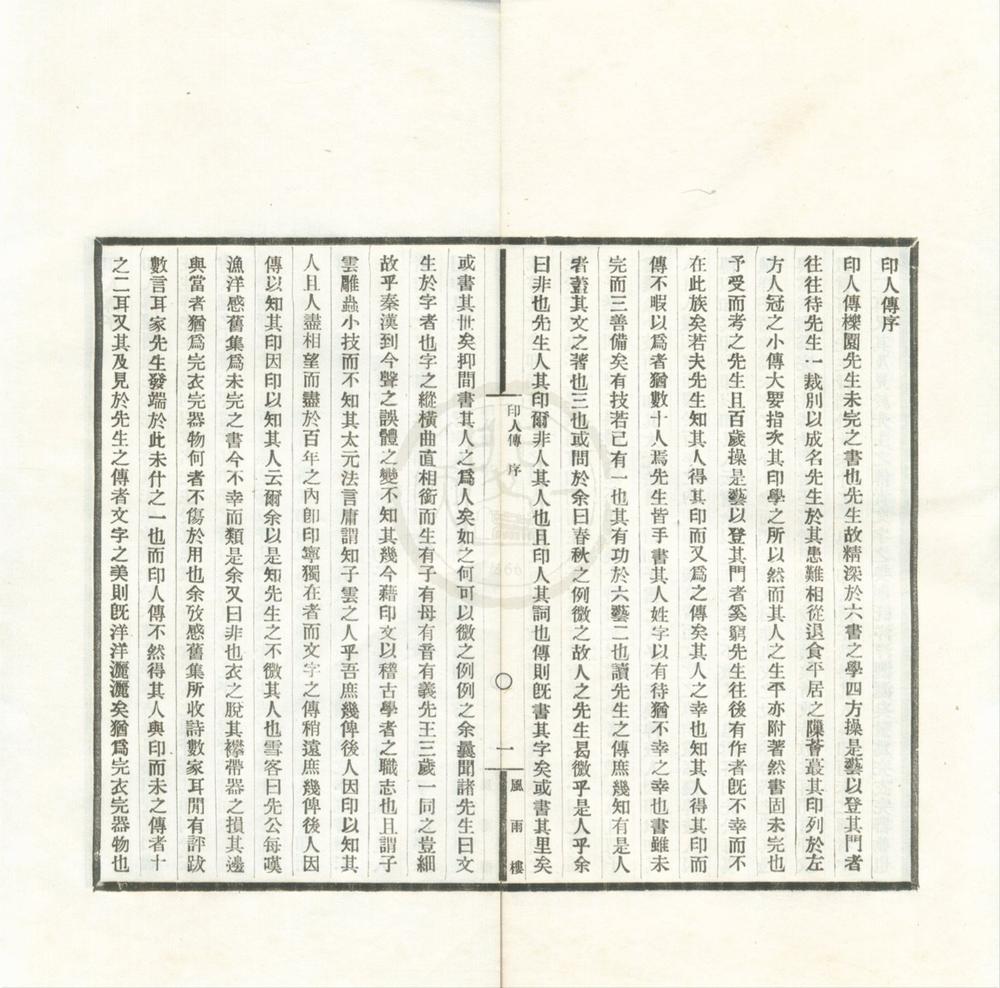 印人傳序
印人傳櫟園先生未完之書也先生故精深於六書之學四方操是藝以登其門者
往往待先生一裁別以成名先生於其患難相從退食平居之隟薈蕞其印列於左
方人冠之小傳大要指次其印學之所以然而其人之生平亦附著然書固未完也
予受而考之先生且百歲操是藝以登其門者奚窮先生往後有作者旣不幸而不
在此族矣若夫先生知其人得其印而又爲之傳矣其人之幸也知其人得其印而
傳不暇以爲者猶數十人焉先生皆手書其人姓字以有待猶不幸之幸也書雖未
完而三善備矣有技若己有一也其有功於六藝二也讀先生之傳庶幾知有是人
者蓋其文之著也三也或問於余曰春秋之例微之故人之先生曷微乎是人乎余
曰非也先生人其印爾非人其人也且印人其詞也傳則旣書其字矣或書其里矣
印人傳 序
〇 一
風雨樓
或書其世矣抑間書其人之爲人矣如之何可以微之例例之余曩聞諸先生曰文
生於字者也字之縱橫曲直相銜而生有子有母有音有義先王三歲一同之豈細
故乎秦漢到今聲之誤體之變不知其幾今藉印文以稽古學者之職志也且謂子
雲雕蟲小技而不知其太元法言庸謂知子雲之人乎吾庶幾俾後人因印以知其
人且人盡相望而盡於百年之內卽印寧獨在者而文字之傳稍遠庶幾俾後人因
傳以知其印因印以知其人云爾余以是知先生之不微其人也雪客曰先公每嘆
漁洋感舊集爲未完之書今不幸而類是余又曰非也衣之脫其襻帶器之損其邊
與當者猶爲完衣完器物何者不傷於用也余攷感舊集所收詩數家耳閒有評跋
數言耳家先生發端於此未什之一也而印人傳不然得其人與印而未之傳者十
之二耳又其及見於先生之傳者文字之美則旣洋洋灑灑矣猶爲完衣完器物也
1866